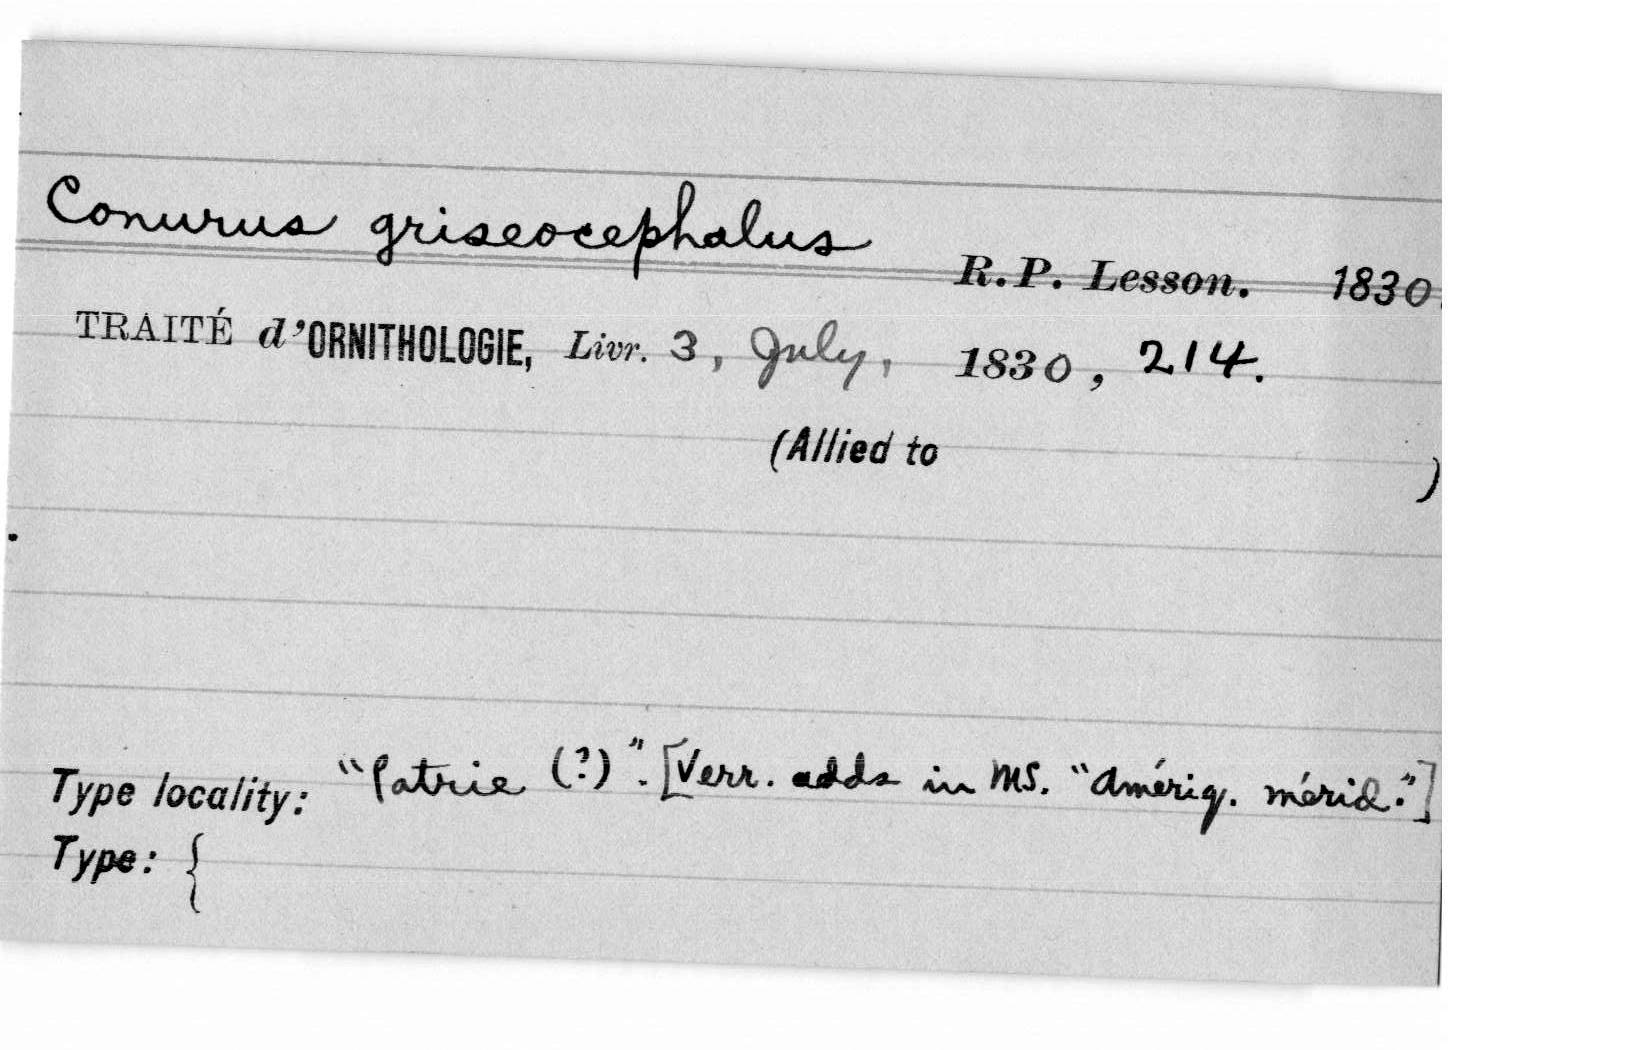 Conurus griseocephalus R.P. Lesson. 1830.
TRAITÉ d'ORNITHOLOGIE, Livr. 3, July, 1830, 214.
(Allied to )
Type locality: "Patrie (?)". [Verr. adds in MS. "Amériq. mérid."]
Type: {